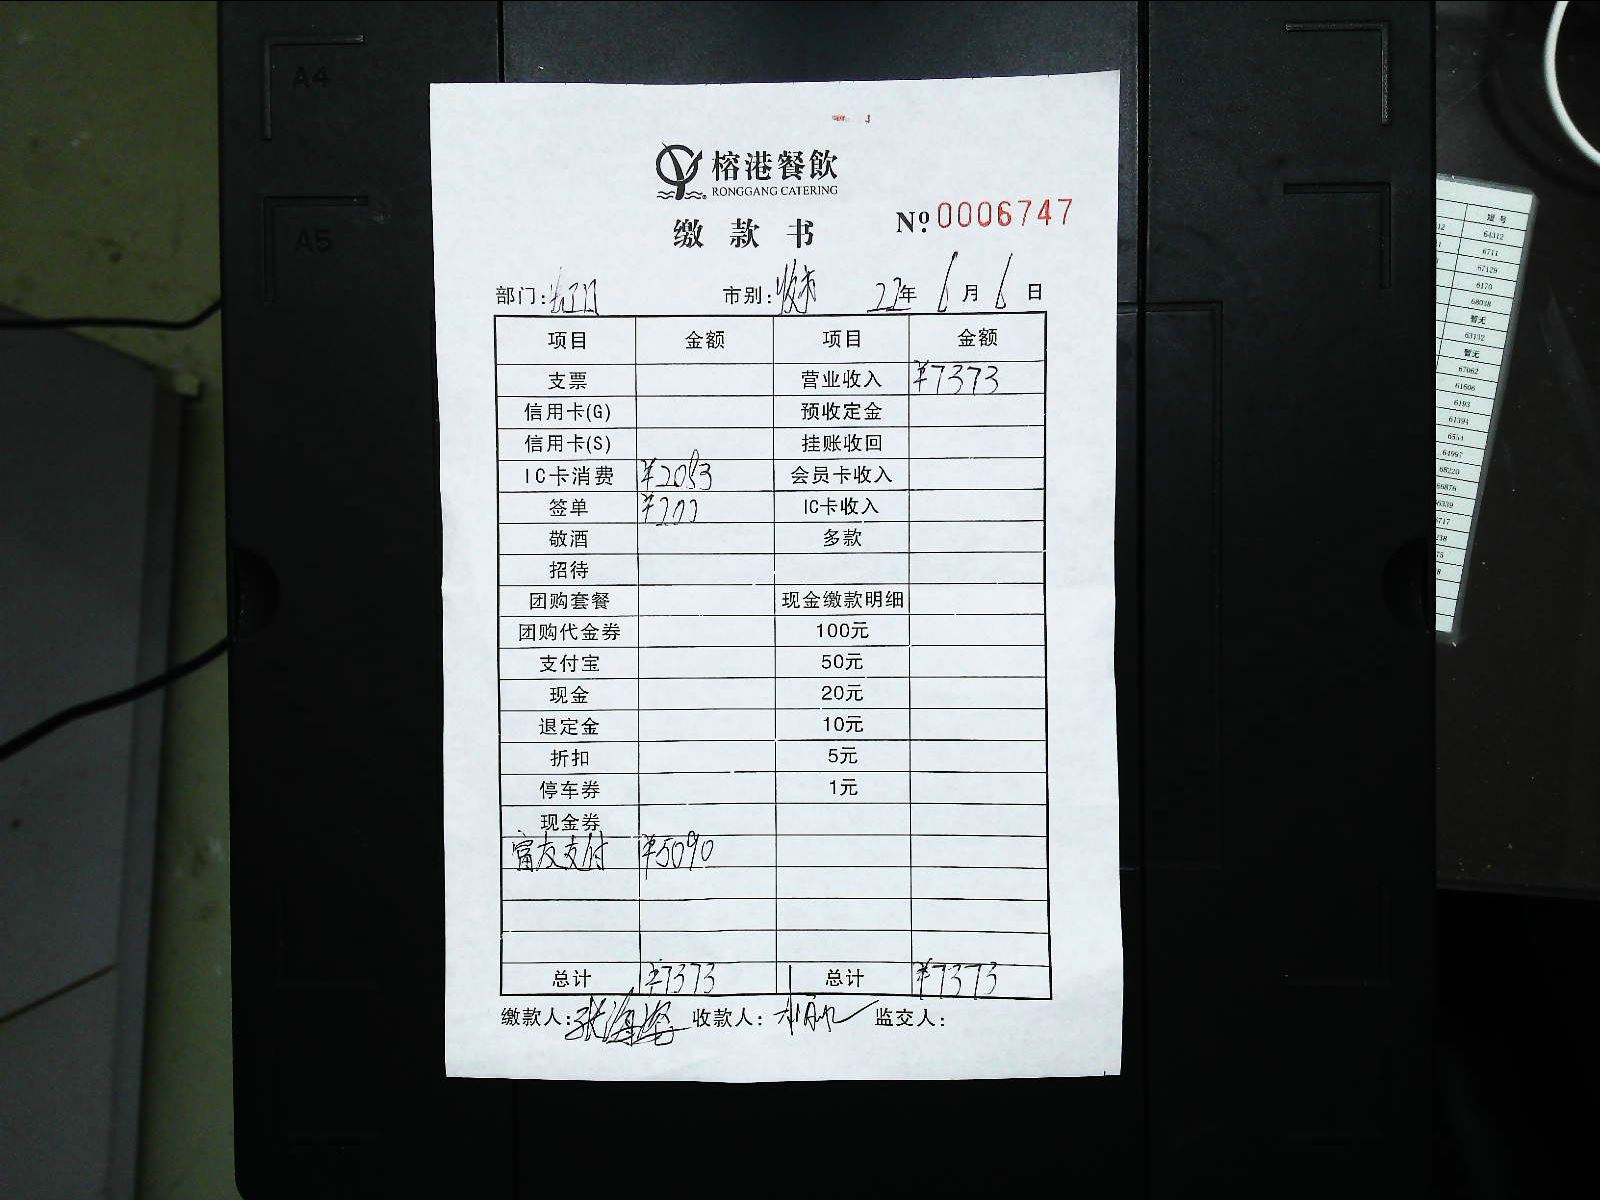 A4
A5
榕港餐飲
RONGGANG CATERING
缴款书
№ 0006747
部门: 市别: 22年 6月 6日
项目 金额 项目 金额
支票 营业收入 ¥7373
信用卡(G) 预收定金
信用卡(S) 挂账收回
IC卡消费 ¥2083 会员卡收入
签单 ¥200 IC卡收入
敬酒 多款
招待
团购套餐 现金缴款明细
团购代金券 100元
支付宝 50元
现金 20元
退定金 10元
折扣 5元
停车券 1元
现金券
富友支付 ¥5090
总计 ¥7373 总计 ¥7373
缴款人: 收款人: 监交人:
短号
64312
6711
67129
6170
68048
暂无
63132
暂无
67062
61606
6193
61394
6554
64997
68220